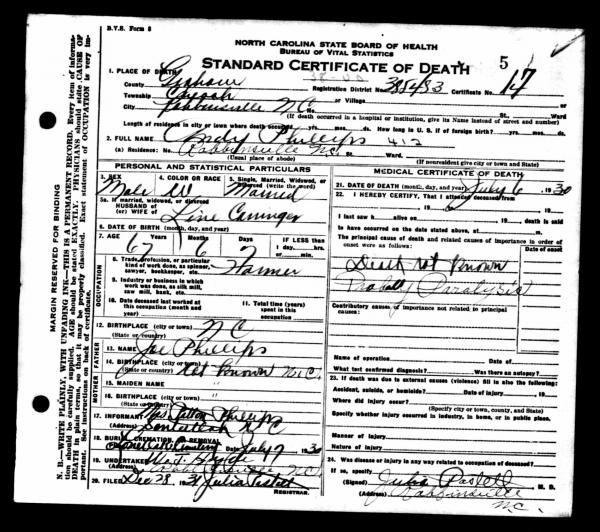 B.V.S. Form 8
NORTH CAROLINA STATE BOARD OF HEALTH
BUREAU OF VITAL STATISTICS
STANDARD CERTIFICATE OF DEATH 5
1. PLACE OF DEATH
County Graham Registration District No. 385483 Certificate No. 17
Township or Village
City Robbinsville N.C. St. Ward
(If death occurred in a hospital or institution, give its Name instead of street and number)
Length of residence in city or town where death occurred yrs. mos. ds. How long in U. S. if of foreign birth? yrs. mos. ds.
2. FULL NAME Phillips 412
(a) Residence: No. Robbinsville N.C. St. Ward.
(Usual place of abode) (If nonresident give city or town and State)
PERSONAL AND STATISTICAL PARTICULARS
3. SEX 4. COLOR OR RACE 5. Single, Married, Widowed, or Divorced (write the word)
Male W Married
5a. If married, widowed, or divorced
HUSBAND of
(or) WIFE of Line
6. DATE OF BIRTH (month, day, and year)
7. AGE Years Months Days IF LESS than
67 6 1 day, hrs.
or min.
OCCUPATION
8. Trade, profession, or particular kind of work done, as spinner, sawyer, bookkeeper, etc. Farmer
9. Industry or business in which work was done, as silk mill, saw mill, bank, etc.
10. Date deceased last worked at this occupation (month and year)
11. Total time (years) spent in this occupation
12. BIRTHPLACE (city or town) N C
(State or country)
FATHER
13. NAME Joe Phillips
14. BIRTHPLACE (city or town)
(State or country) Not Known N.C.
MOTHER
15. MAIDEN NAME "
16. BIRTHPLACE (city or town) "
(State or country)
17. INFORMANT Mrs. Phillips
(Address) Santeetlah N.C
18. BURIAL, CREMATION OR REMOVAL
Date July 7 1930
19. UNDERTAKER
(Address) Robbinsville N.C.
20. FILED Dec 28 Julia
REGISTRAR.
MEDICAL CERTIFICATE OF DEATH
21. DATE OF DEATH (month, day, and year) July 6, 1930
22. I HEREBY CERTIFY, That I attended deceased from
19 to 19
I last saw h alive on 19 death is said
to have occurred on the date stated above, at m.
The principal cause of death and related causes of importance in order of onset were as follows:
Date of onset
Death not known
Probably Paralysis
Contributory causes of importance not related to principal causes:
Name of operation Date of
What test confirmed diagnosis? Was there an autopsy?
23. If death was due to external causes (violence) fill in also the following:
Accident, suicide, or homicide? Date of injury 19
Where did injury occur?
(Specify city or town, county, and State)
Specify whether injury occurred in industry, in home, or in public place.
Manner of injury
Nature of injury
24. Was disease or injury in any way related to occupation of deceased?
If so, specify
(Signed) Julia M. D.
(Address) Robbinsville
N.C.
MARGIN RESERVED FOR BINDING
N. B.—WRITE PLAINLY, WITH UNFADING INK—THIS IS A PERMANENT RECORD. Every item of information should be carefully supplied. AGE should be stated EXACTLY. PHYSICIANS should state CAUSE OF DEATH in plain terms, so that it may be properly classified. Exact statement of OCCUPATION is very important. See instructions on back of certificate.